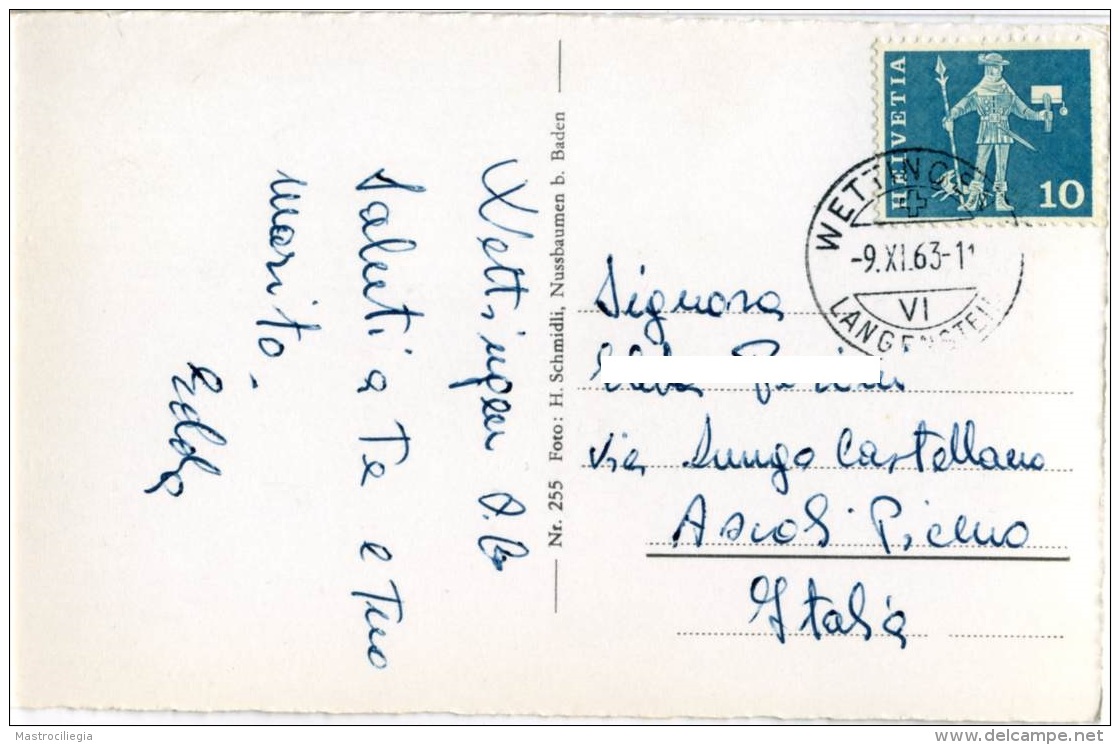 Wettingen
Saluti a Te e Tuo
marito.
Edda
Nr. 255 Foto: H. Schmidli, Nussbaumen b. Baden
HELVETIA
10
WETTINGEN
-9.XI.63-11
VI
LANGENSTEIN
Signora
via Lungo Castellano
Ascoli Piceno
Italia
Mastrociliegia
delcampe.net